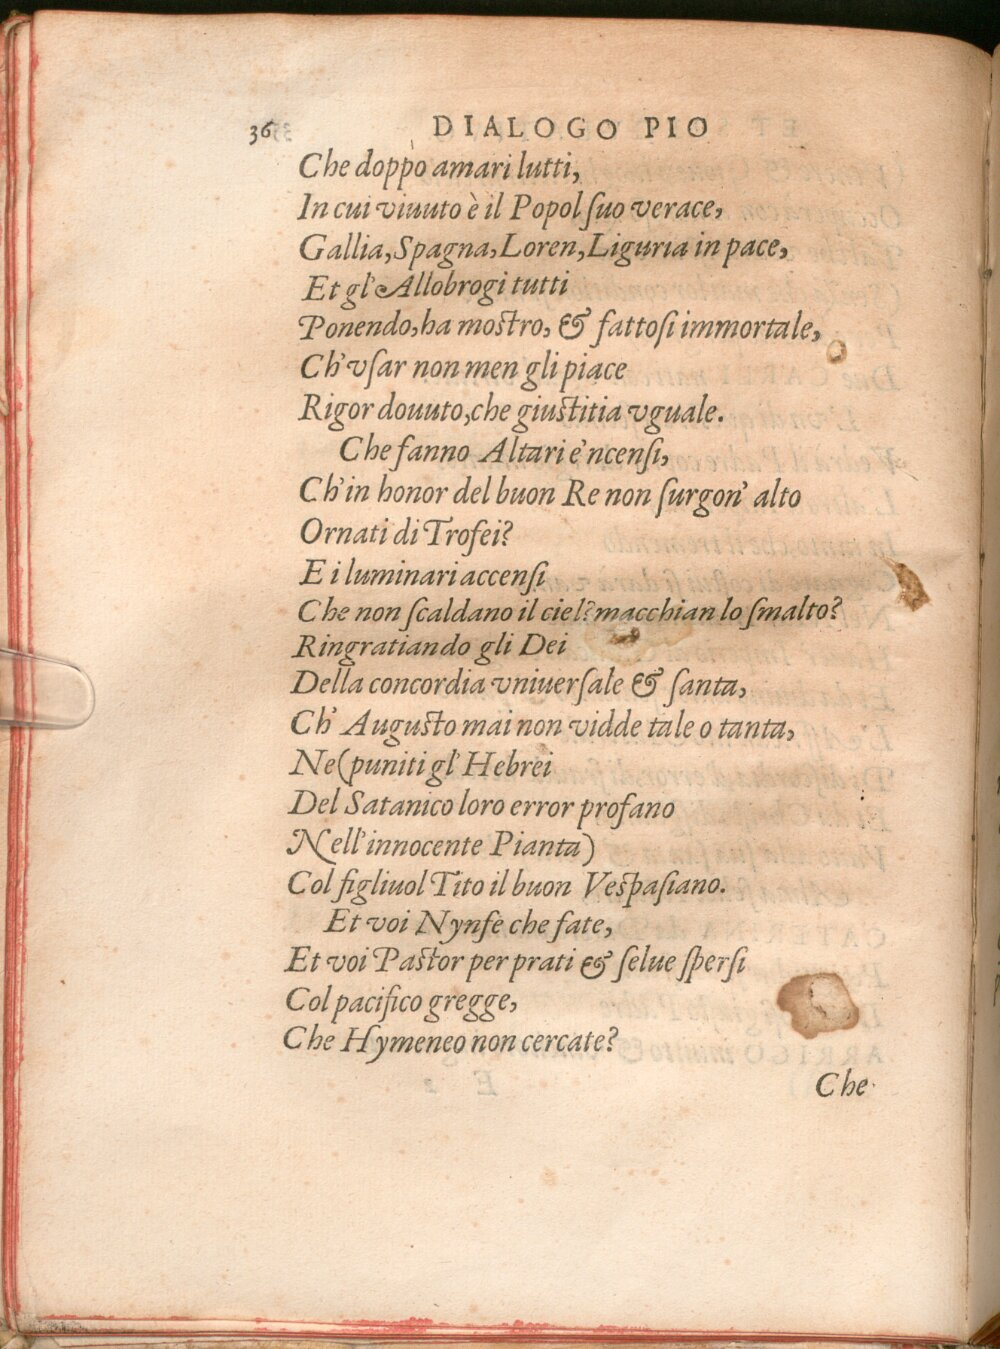 36 DIALOGO PIO
Che doppo amari lutti,
In cui viuuto è il Popol ſuo verace,
Gallia, Spagna, Loren, Liguria in pace,
Et gl'Allobrogi tutti
Ponendo, ha moſtro, & fattoſi immortale,
Ch'vſar non men gli piace
Rigor douuto, che giuſtitia vguale.
Che fanno Altari e'ncenſi,
Ch'in honor del buon Re non ſurgon' alto
Ornati di Trofei?
E i luminari accenſi
Che non ſcaldano il ciel? macchian lo ſmalto?
Ringratiando gli Dei
Della concordia vniuerſale & ſanta,
Ch' Auguſto mai non vidde tale o tanta,
Ne (puniti gl'Hebrei
Del Satanico loro error profano
Nell'innocente Pianta)
Col figliuol Tito il buon Veſpaſiano.
Et voi Nynfe che fate,
Et voi Paſtor per prati & ſelue ſperſi
Col pacifico gregge,
Che Hymeneo non cercate?
Che